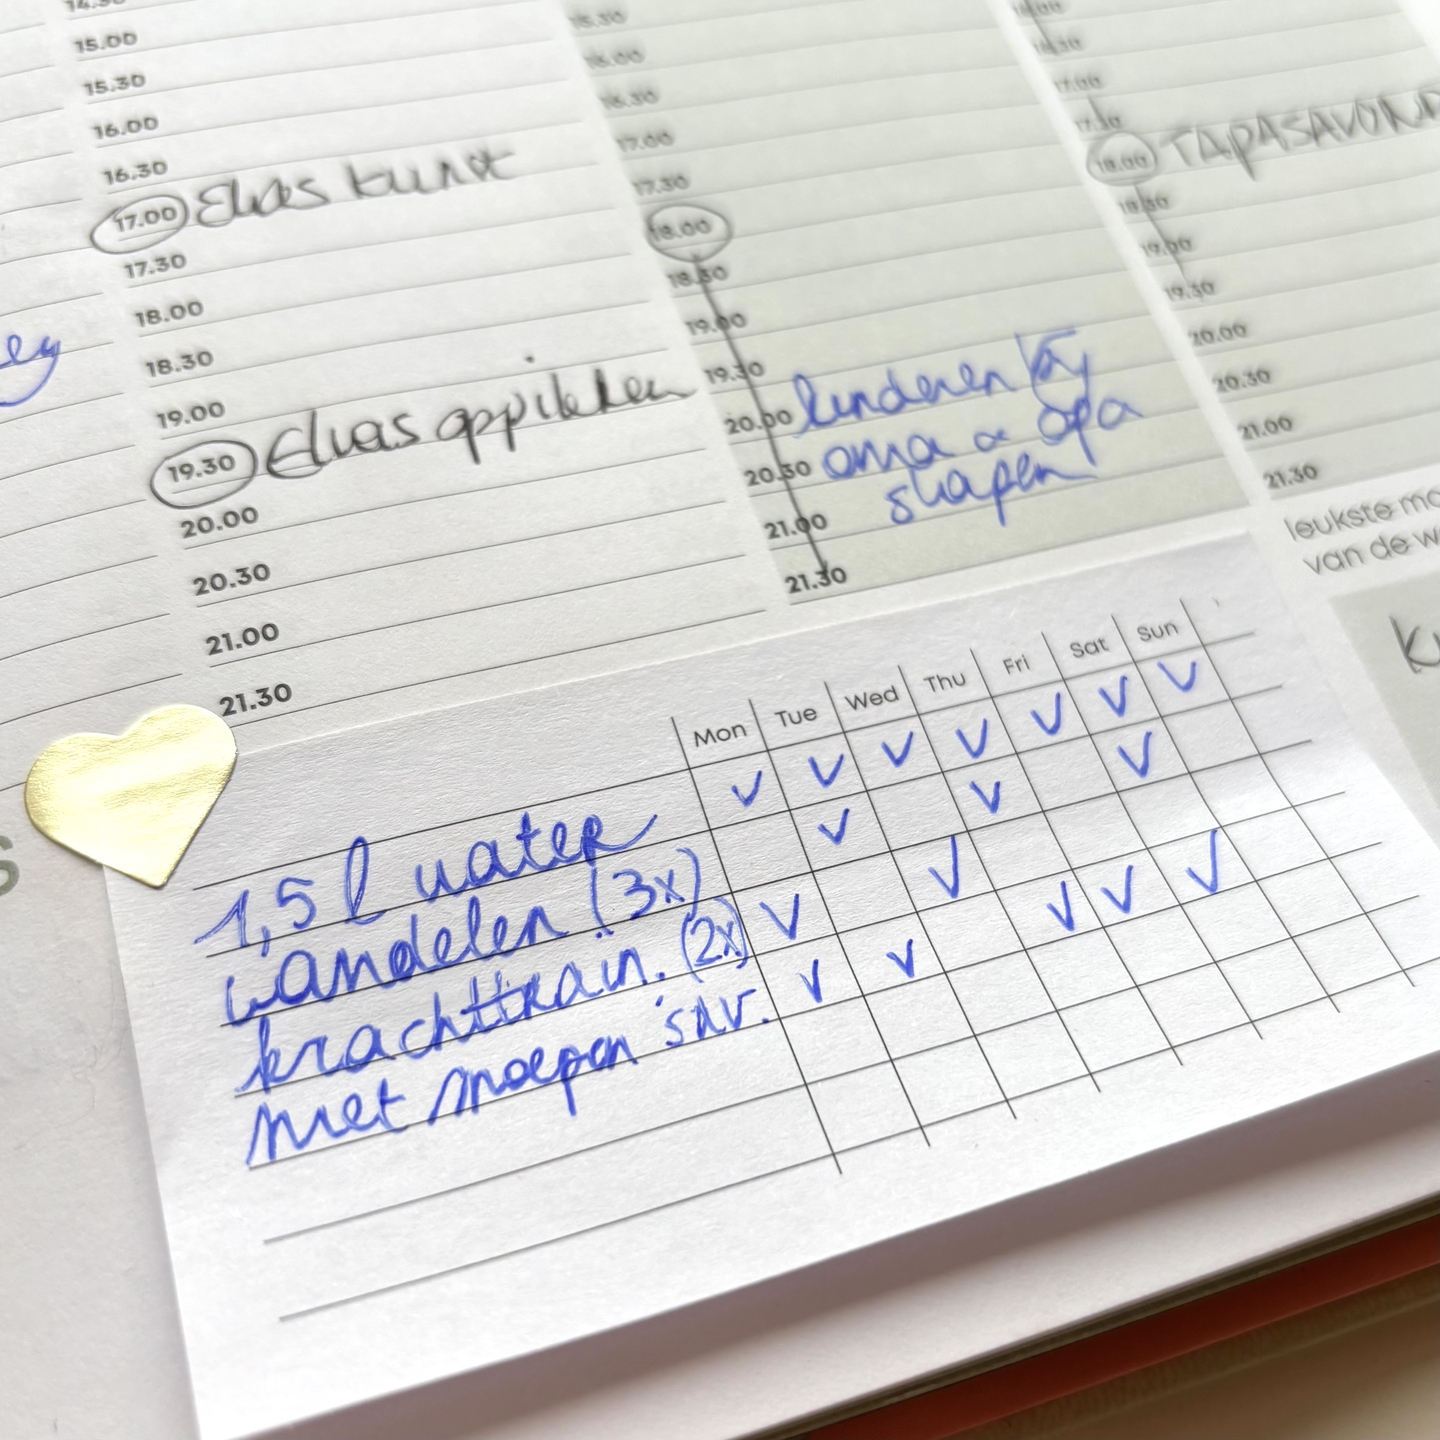 15.00
15.30
16.00
16.30
17.00 Elias kunst
17.30
18.00
18.30
19.00
19.30 Elias oppikken
20.00
20.30
21.00
21.30
ey
16.00
16.30
17.00
17.30
18.00
18.30
19.00
19.30
20.00
20.30
21.00
21.30
kinderen bij
oma & opa
slapen
17.00
17.30
18.00 TAPASAVOND
18.30
19.00
19.30
20.00
20.30
21.00
21.30
leukste mo
van de w
Mon Tue Wed Thu Fri Sat Sun
1,5 l water
wandelen (3x)
krachttrain. (2x)
niet snoepen 's av.